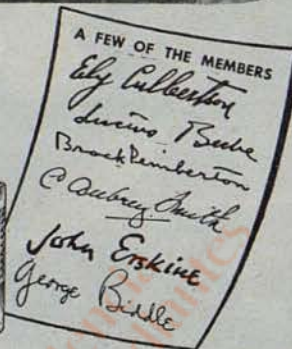 A FEW OF THE MEMBERS
Ely Culbertson
Lucius Beebe
Brock Pemberton
C Aubrey Smith
John Erskine
George Biddle